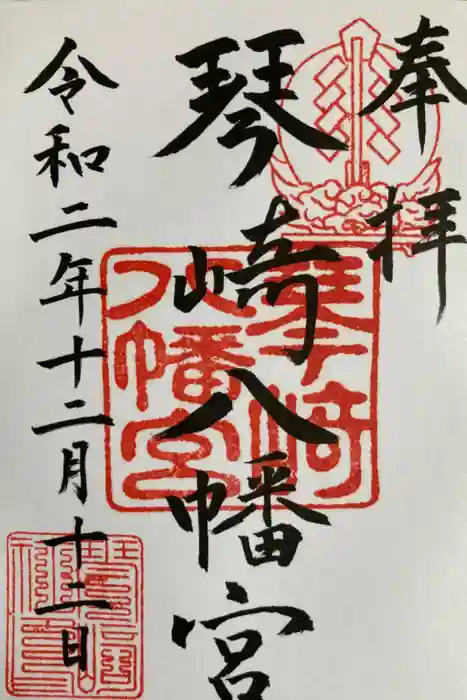 奉拝
琴崎八幡宮
令和二年十二月十二日
琴崎
八幡宮